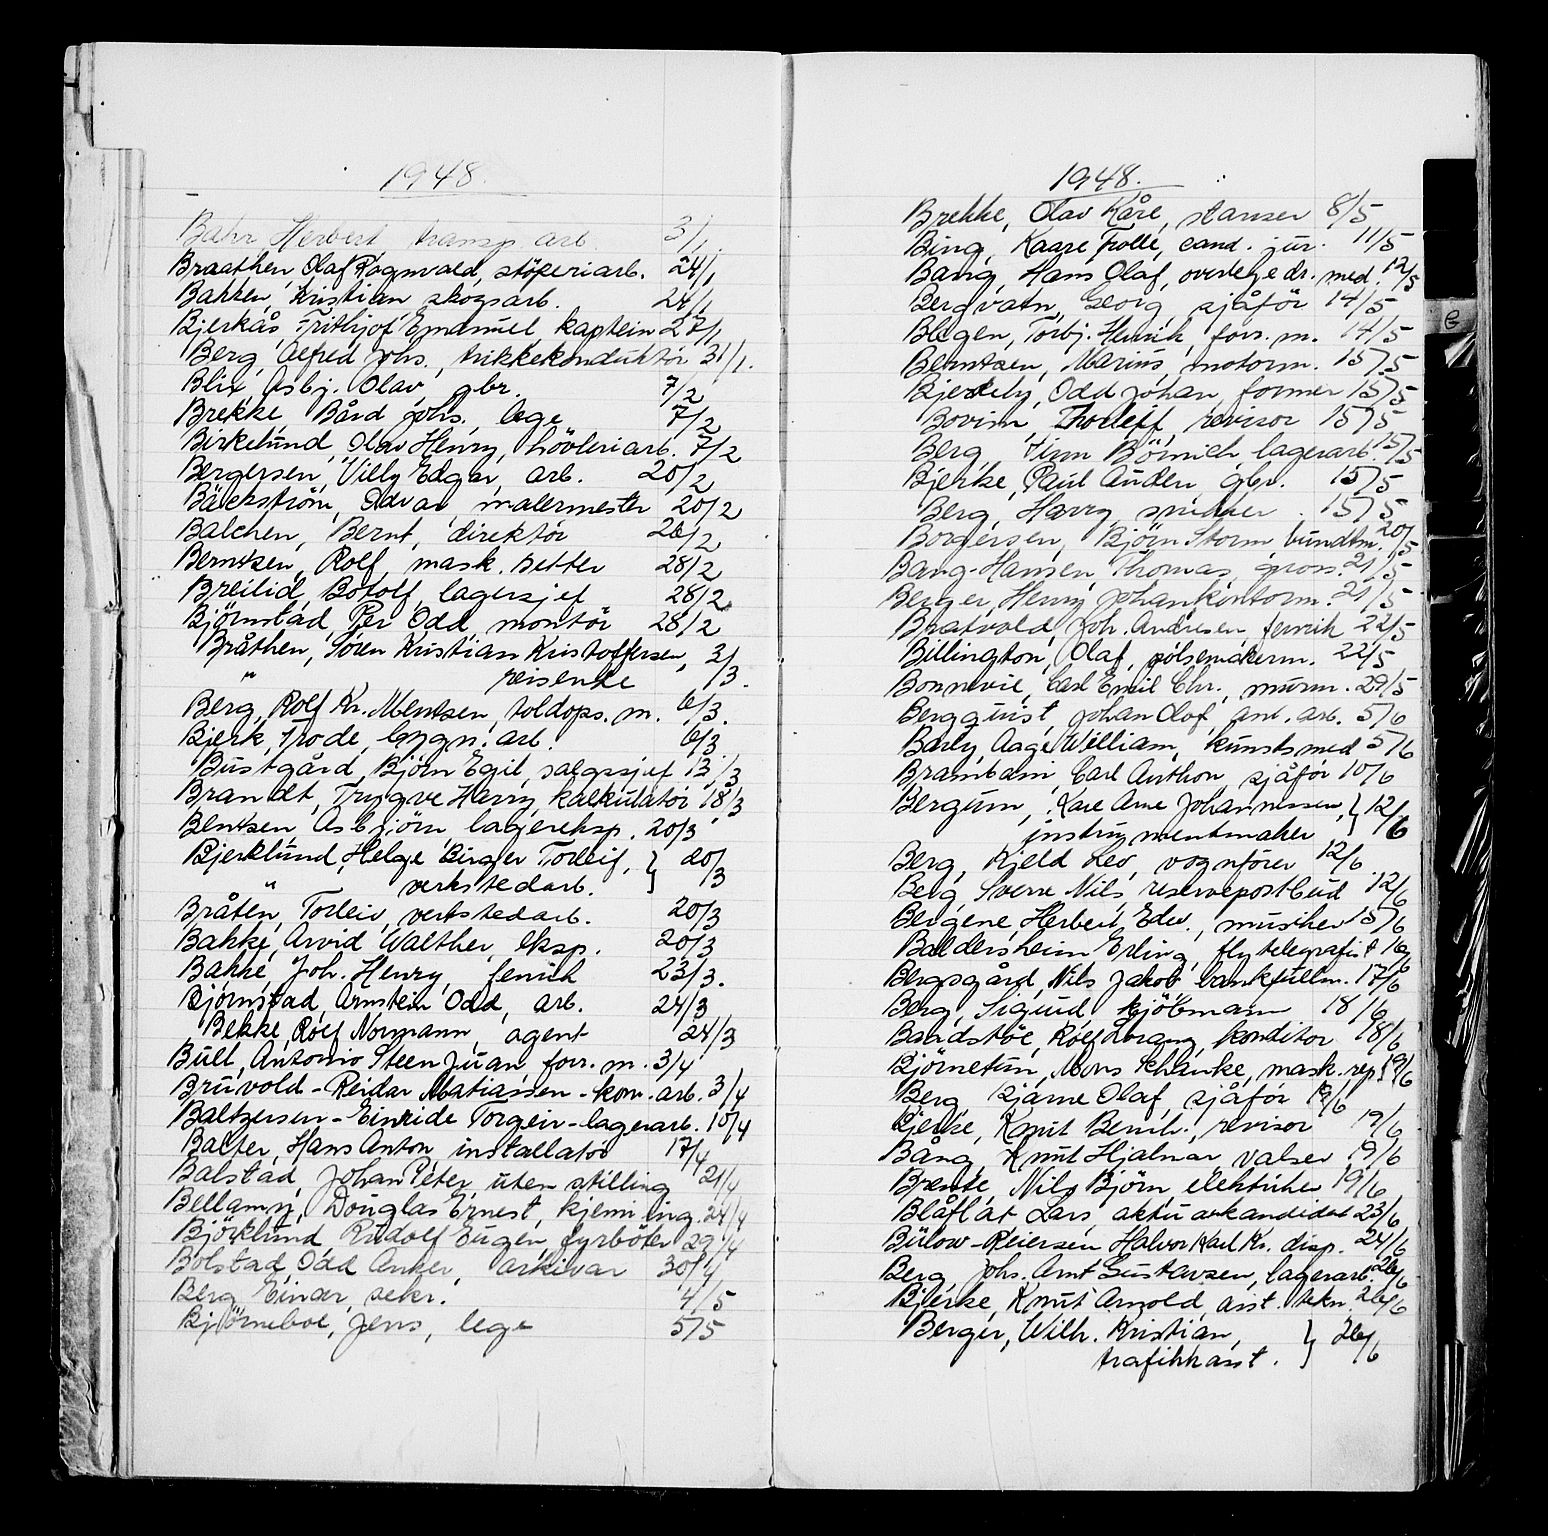 1948.
Bahr Herbert transp. arb. 3/1
Braathen, Olaf Ragnvald, støperiarb. 24/1
Bakken, Kristian skogsarb. 24/1
Bjerkås Frithjof Emanuel kaptein 27/1
Berg, Alfred Johs., trikkekonduktör 31/1.
Blix, Asbj. Olav, gbr. 7/2
Brekke, Bård Johs., lege 7/2
Birkelund, Olav Henry, hövleriarb. 7/2
Bergersen, Villy Edgar, arb. 20/2
Bäckström, Odvar, malermester 20/2
Balchen, Bernt, direktör 26/2
Berntsen, Rolf, mask. setter 28/2
Breilid, Botolf, lagersjef 28/2
Bjørnstad, Per Odd, montör 28/2
Bråthen, Sören Kristian Kristoffersen, 3/3.
" reisende
Berg, Rolf Kr. Mentsen, toldops. m. 6/3.
Bjerk, Frode, bygn. arb. 6/3
Bustgård, Bjørn Egil, salgssjef 13/3
Brandt, Trygve Harry, kalkulatör 18/3
Bentsen, Asbjörn, lagereksp. 20/3
Bjerklund, Helge Birger Torleif, } 20/3
" verkstedarb.
Bråten, Torleiv, verkstedarb. 20/3
Bakke, Arvid Walther, eksp. 20/3
Bakke, Joh. Henry, fenrik 23/3.
Bjørnstad, Arnstein Odd, arb. 24/3
Bekke, Rolf Normann, agent 24/3
Bull, Antonio Steen Juan forr. m. 3/4
Bruvold - Reidar Matiassen - kom. arb. 3/4
Baltzersen - Einride Torgeir - lagerarb. 10/4
Balter, Hans Anton, installatör 17/4
Balstad, Johan Peter, uten stilling 21/4
Bellamy, Douglas Ernest, kjemi ing. 24/4
Björklund Rudolf Eugen, fyrböter 29/4
Bolstad, Odd Anker, arkivar 30/4
Berg Einar, sekr. 4/5
Bjørneboe, Jens, lege 5/5
1948.
Brekke, Olav Kåre, stanser 8/5
Bing, Kaare Trolle, cand. jur. 11/5
Bang, Hans Olaf, overlege dr. med. 12/5
Bergvatn, Georg, sjåför 14/5
Bugen, Torbj. Henrik, forr. m. 14/5
Berntsen, Marius, motorm. 15/5
Bjerkely, Odd Johan, former 15/5
Bovim, Thorleif, revisor 15/5
Berg, Finn lagerarb. 15/5
Bjerke, Paul Anden gbr. 15/5
Berg, Harry, snekker. 15/5
Borgersen, Bjørn Storm, bundtm. 20/5
Bang-Hansen, Thomas, gross. 21/5
Berger, Henry Johan, kontorm. 21/5
Bratvold, Joh. Andresen, fenrik 22/5
Billington, Olaf, pölsemakerm. 22/5
Bonnevie, Carl Emil Chr., murm. 29/5
Bergquist, Johan Olof, anl. arb. 5/6
Barly, Aage William, kunstsmed 5/6
Brambani, Carl Anthon, sjåför 10/6
Bergum, Kåre Arne Johannessen, } 12/6
instrumentmaker
Berg, Kjeld Leo, vognförer 12/6
Berg, Sverre Nils, reservepostbud 12/6
Bergene, Herbert Edv., musiker 15/6
Baldersheim Erling, flytelegrafist 16/6
Bergsgård, Nils Jakob, bankfullm. 17/6
Berg, Sigurd, kjöbmann 18/6
Bandstöe, Rolf Lorang, konditor 18/6
Bjørnetun, Mons Schanke, mask. rep. 19/6
Berg, Bjarne Olaf, sjåför 19/6
Bjerke, Knut Bernh., revisor 19/6
Bång, Knut Hjalmar, valser 19/6
Brente, Nils Bjørn, elektriker 19/6
Blåflat Lars, aktuarkandidat 23/6
Bülow-Reiersen Halvor Karl Kr. disp. 24/6
Berg, Johs. Arnt Gustavsen, lagerarb. 26/6
Bjerke, Knut Arnold, asst. tekn. 26/6
Berger, Wilh. Kristian, } 26/6
trafikkasst.
B